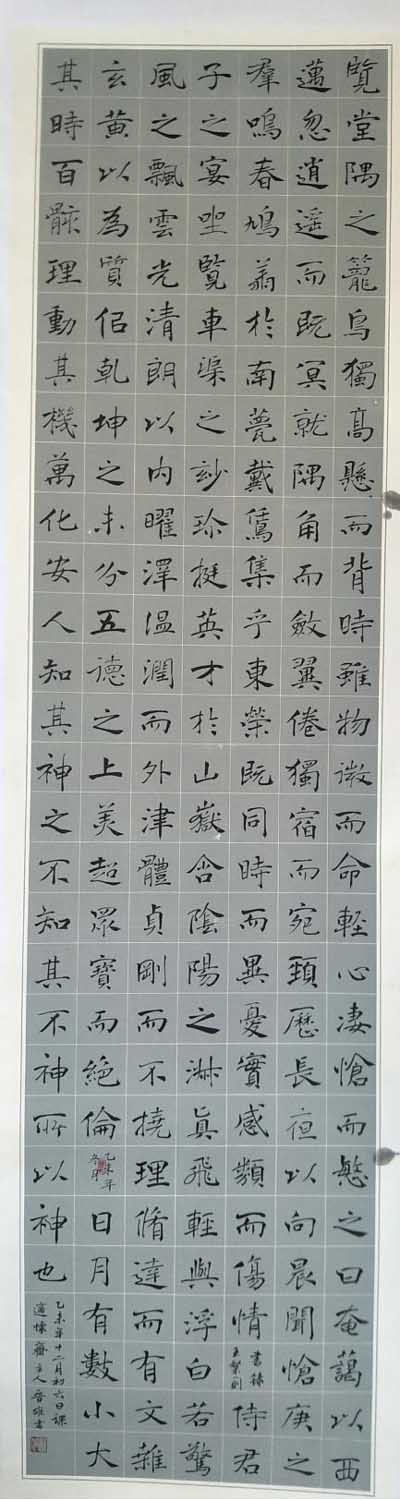 覽堂隅之籠鳥獨高懸而背時雖物微而命輕心凄愴而愍之日奄藹以西
邁忽逍遥而既冥就隅角而斂翼倦獨宿而宛頸歷長夜以向晨聞愴庚之
羣鳴春鳩翥於南甍戴鵀集乎東榮既同時而異憂實感類而傷情侍君
子之宴坐覽車渠之玅珍挺英才於山嶽含陰陽之淋真飛輕與浮白若驚
風之飄雲光清朗以内曜澤温潤而外津體貞剛而不撓理脩達而有文雜
玄黄以為質佀乾坤之未分五德之上美超眾寶而絶倫乙未年冬月日月有數小大
其時百骸理動其機萬化安人知其神之不知其不神所以神也
乙未年十二月初六日課
齋主人